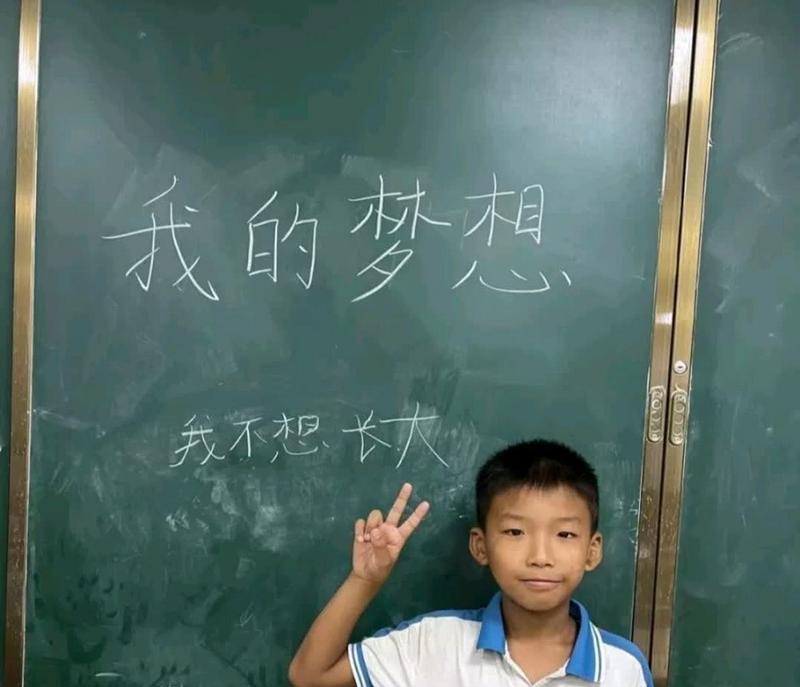 我的梦想
我不想长大